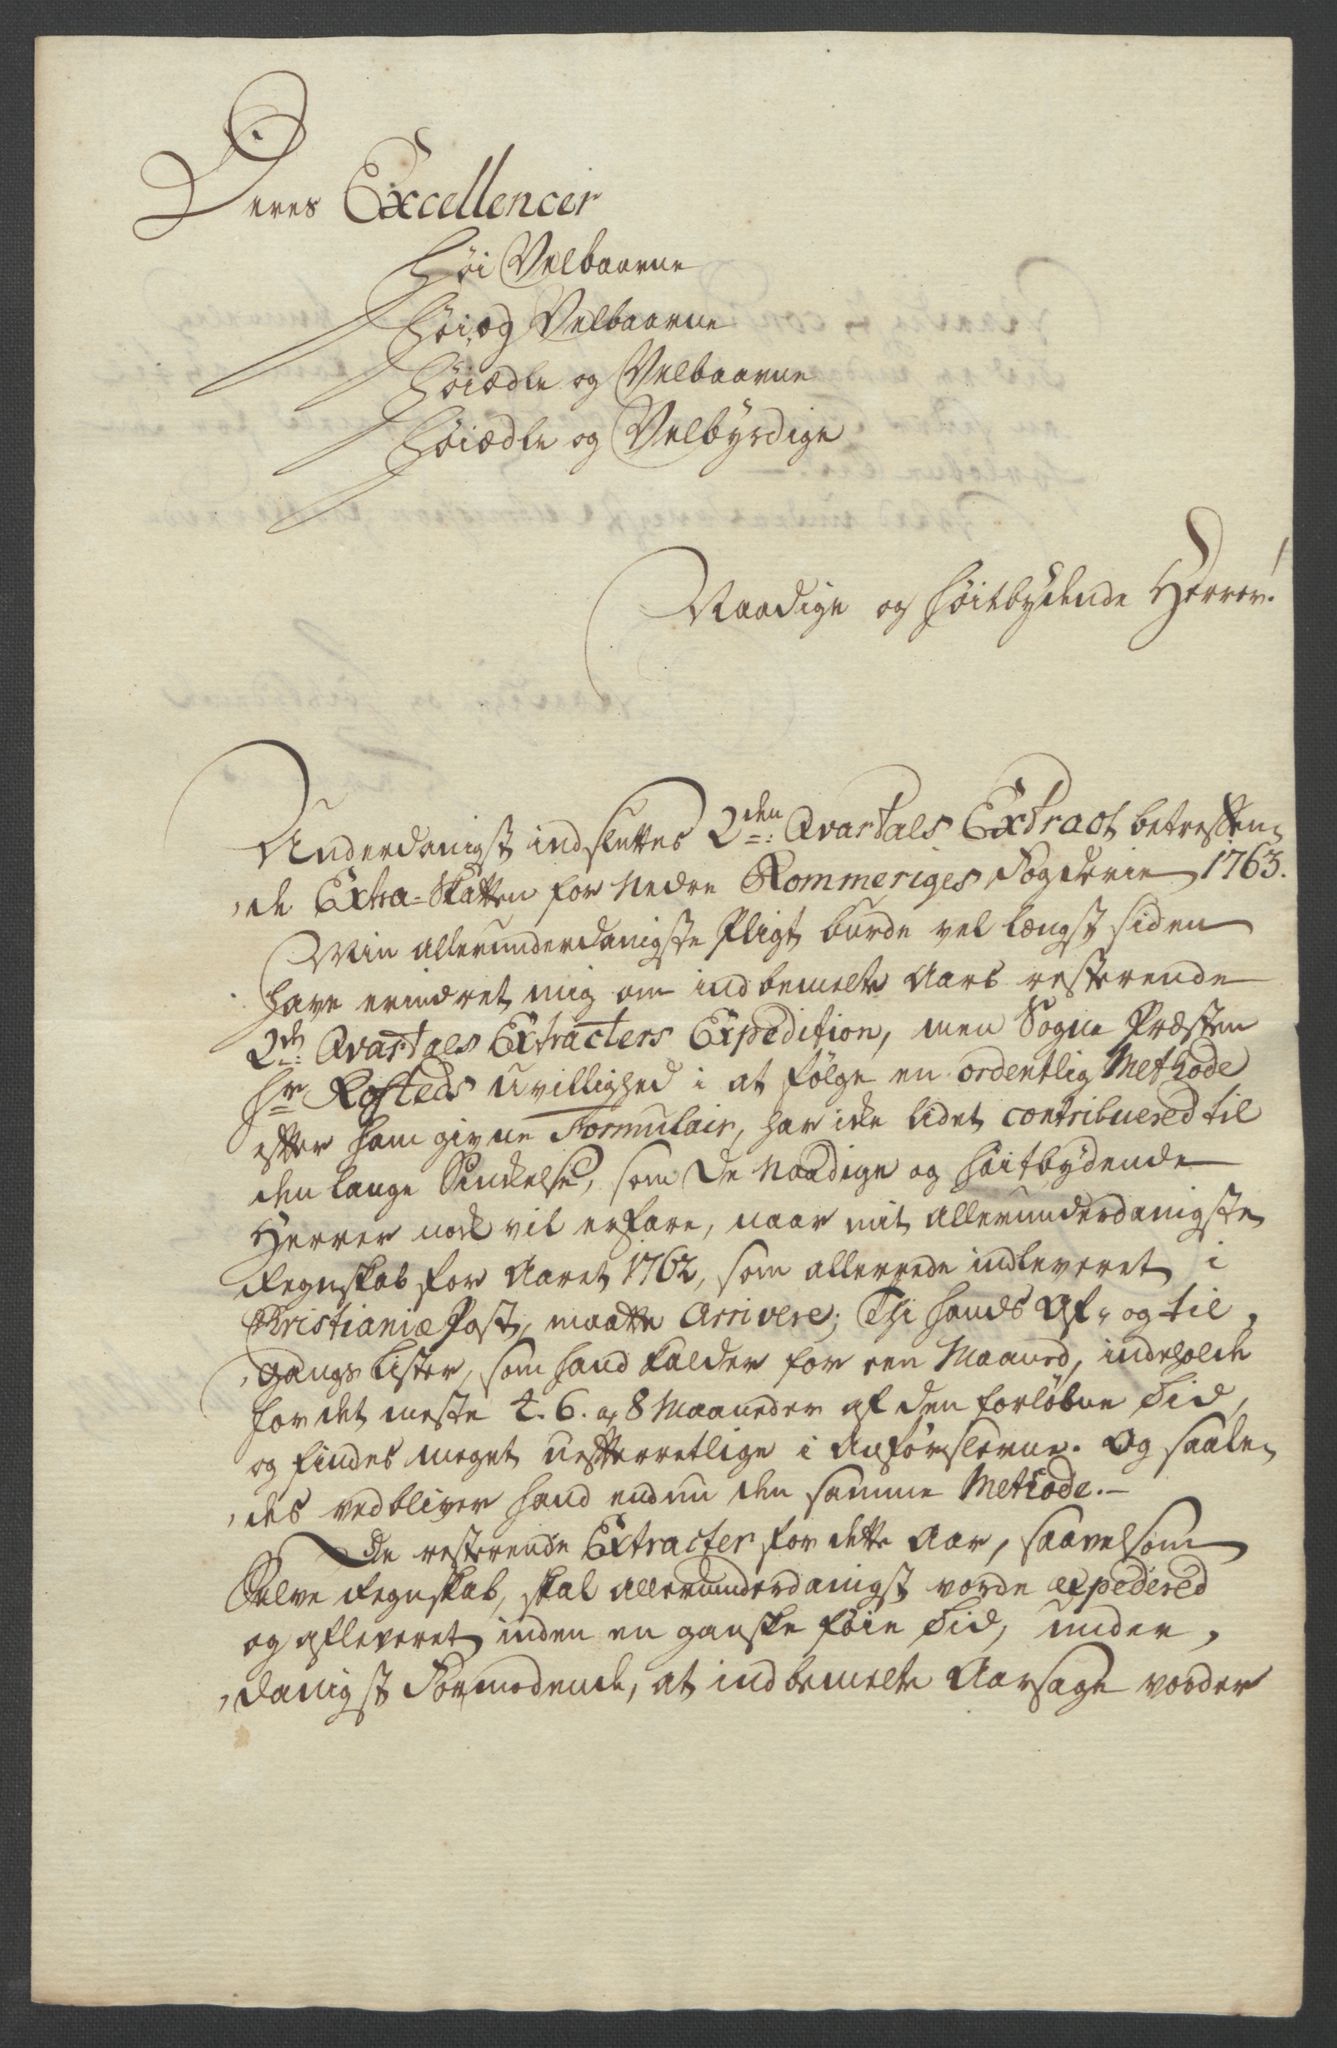 Deres Excellencer
Høi Velbaarne
Høi og Velbaarne
Høiædle og Velbaarne
Høiædle og Velbÿrdige
Naadige og høitbydende Herrer!
Underdanigst indsluttes 2den Qvartals Extract betreffen,
,de Extra-Skatten for Nedre Rommeriges Fogderie 1763.
Min allerunderdanigste Pligt burde vel længst siden
have erindret mig om indbemelte Aars resterende
2de Qvartals Extracters Expedition, men Sogne Præsten
Hr Rofteds uvillighed i at følge en ordentlig Methode
efter ham givne Formulair, har ikke lidet contribuered til
den lange Sinkelse, som De Naadige og høitbydende
Herrer nok vil erfare, naar mit allerunderdanigste
Regnskab for Aaret 1762, som allerede indleveret i
Christianiæ Post, maatte Arrivere; Thi hands Af- og til,
,gangs Lister, som hand kalder for een Maaned, indeholde
for det meste 4. 6. a 8 Maaneder af den forløbne Tid,
og findes meget uefterretlige i Anførslerne. Og saale,
,des vedbliver hand endnu den samme Methode.-
De resterende Extracter for dette Aar, saavelsom
Selve Regnskab, skal allerunderdanigst vorde expedered
og afleveret inden en ganske føie Tid, under,
,danigst Formodende, at indbemelte Aarsage vorder